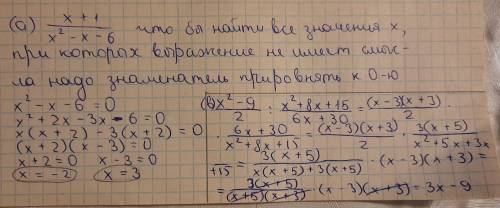 (a) x + 1 / x² - x - 6 что бы найти все значения x,
при которых выражение не имеет смыс-
ла надо знаменатель прировнять к 0-ю
x² - x - 6 = 0
x² + 2x - 3x - 6 = 0
x(x + 2) - 3(x + 2) = 0
(x + 2)(x - 3) = 0
x + 2 = 0 x - 3 = 0
x = -2 x = 3
(b) x² - 9 / 2 : x² + 8x + 15 / 6x + 30 = (x - 3)(x + 3) / 2 ·
· 6x + 30 / x² + 8x + 15 = (x - 3)(x + 3) / 2 · 3(x + 5) / x² + 5x + 3x
+15 = 3(x + 5) / x(x + 5) + 3(x + 5) · (x - 3)(x + 3) =
= 3(x + 5) / (x + 5)(x + 3) · (x - 3)(x + 3) = 3x - 9